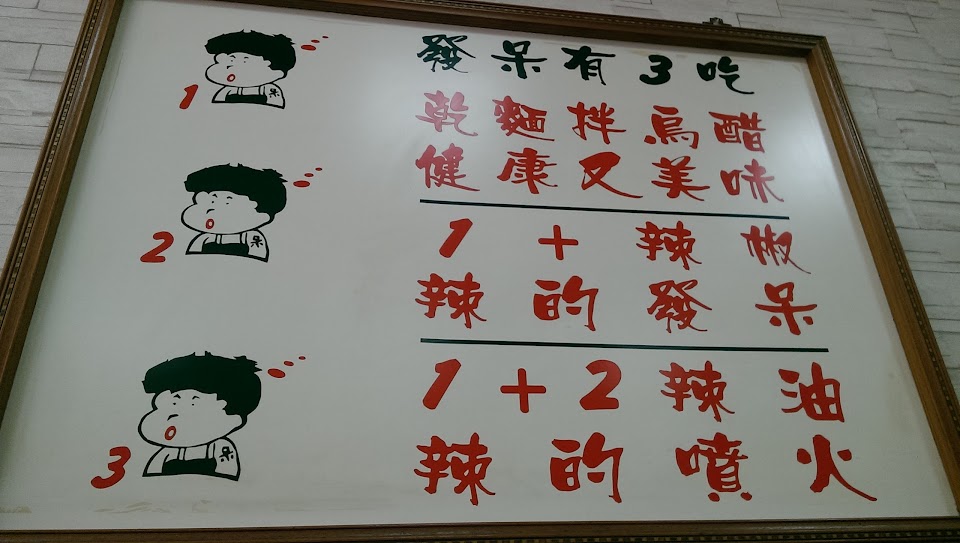 發呆有3吃
1
呆
乾麵拌烏醋
健康又美味
2
呆
1+辣椒
辣的發呆
3
呆
1+2辣油
辣的噴火